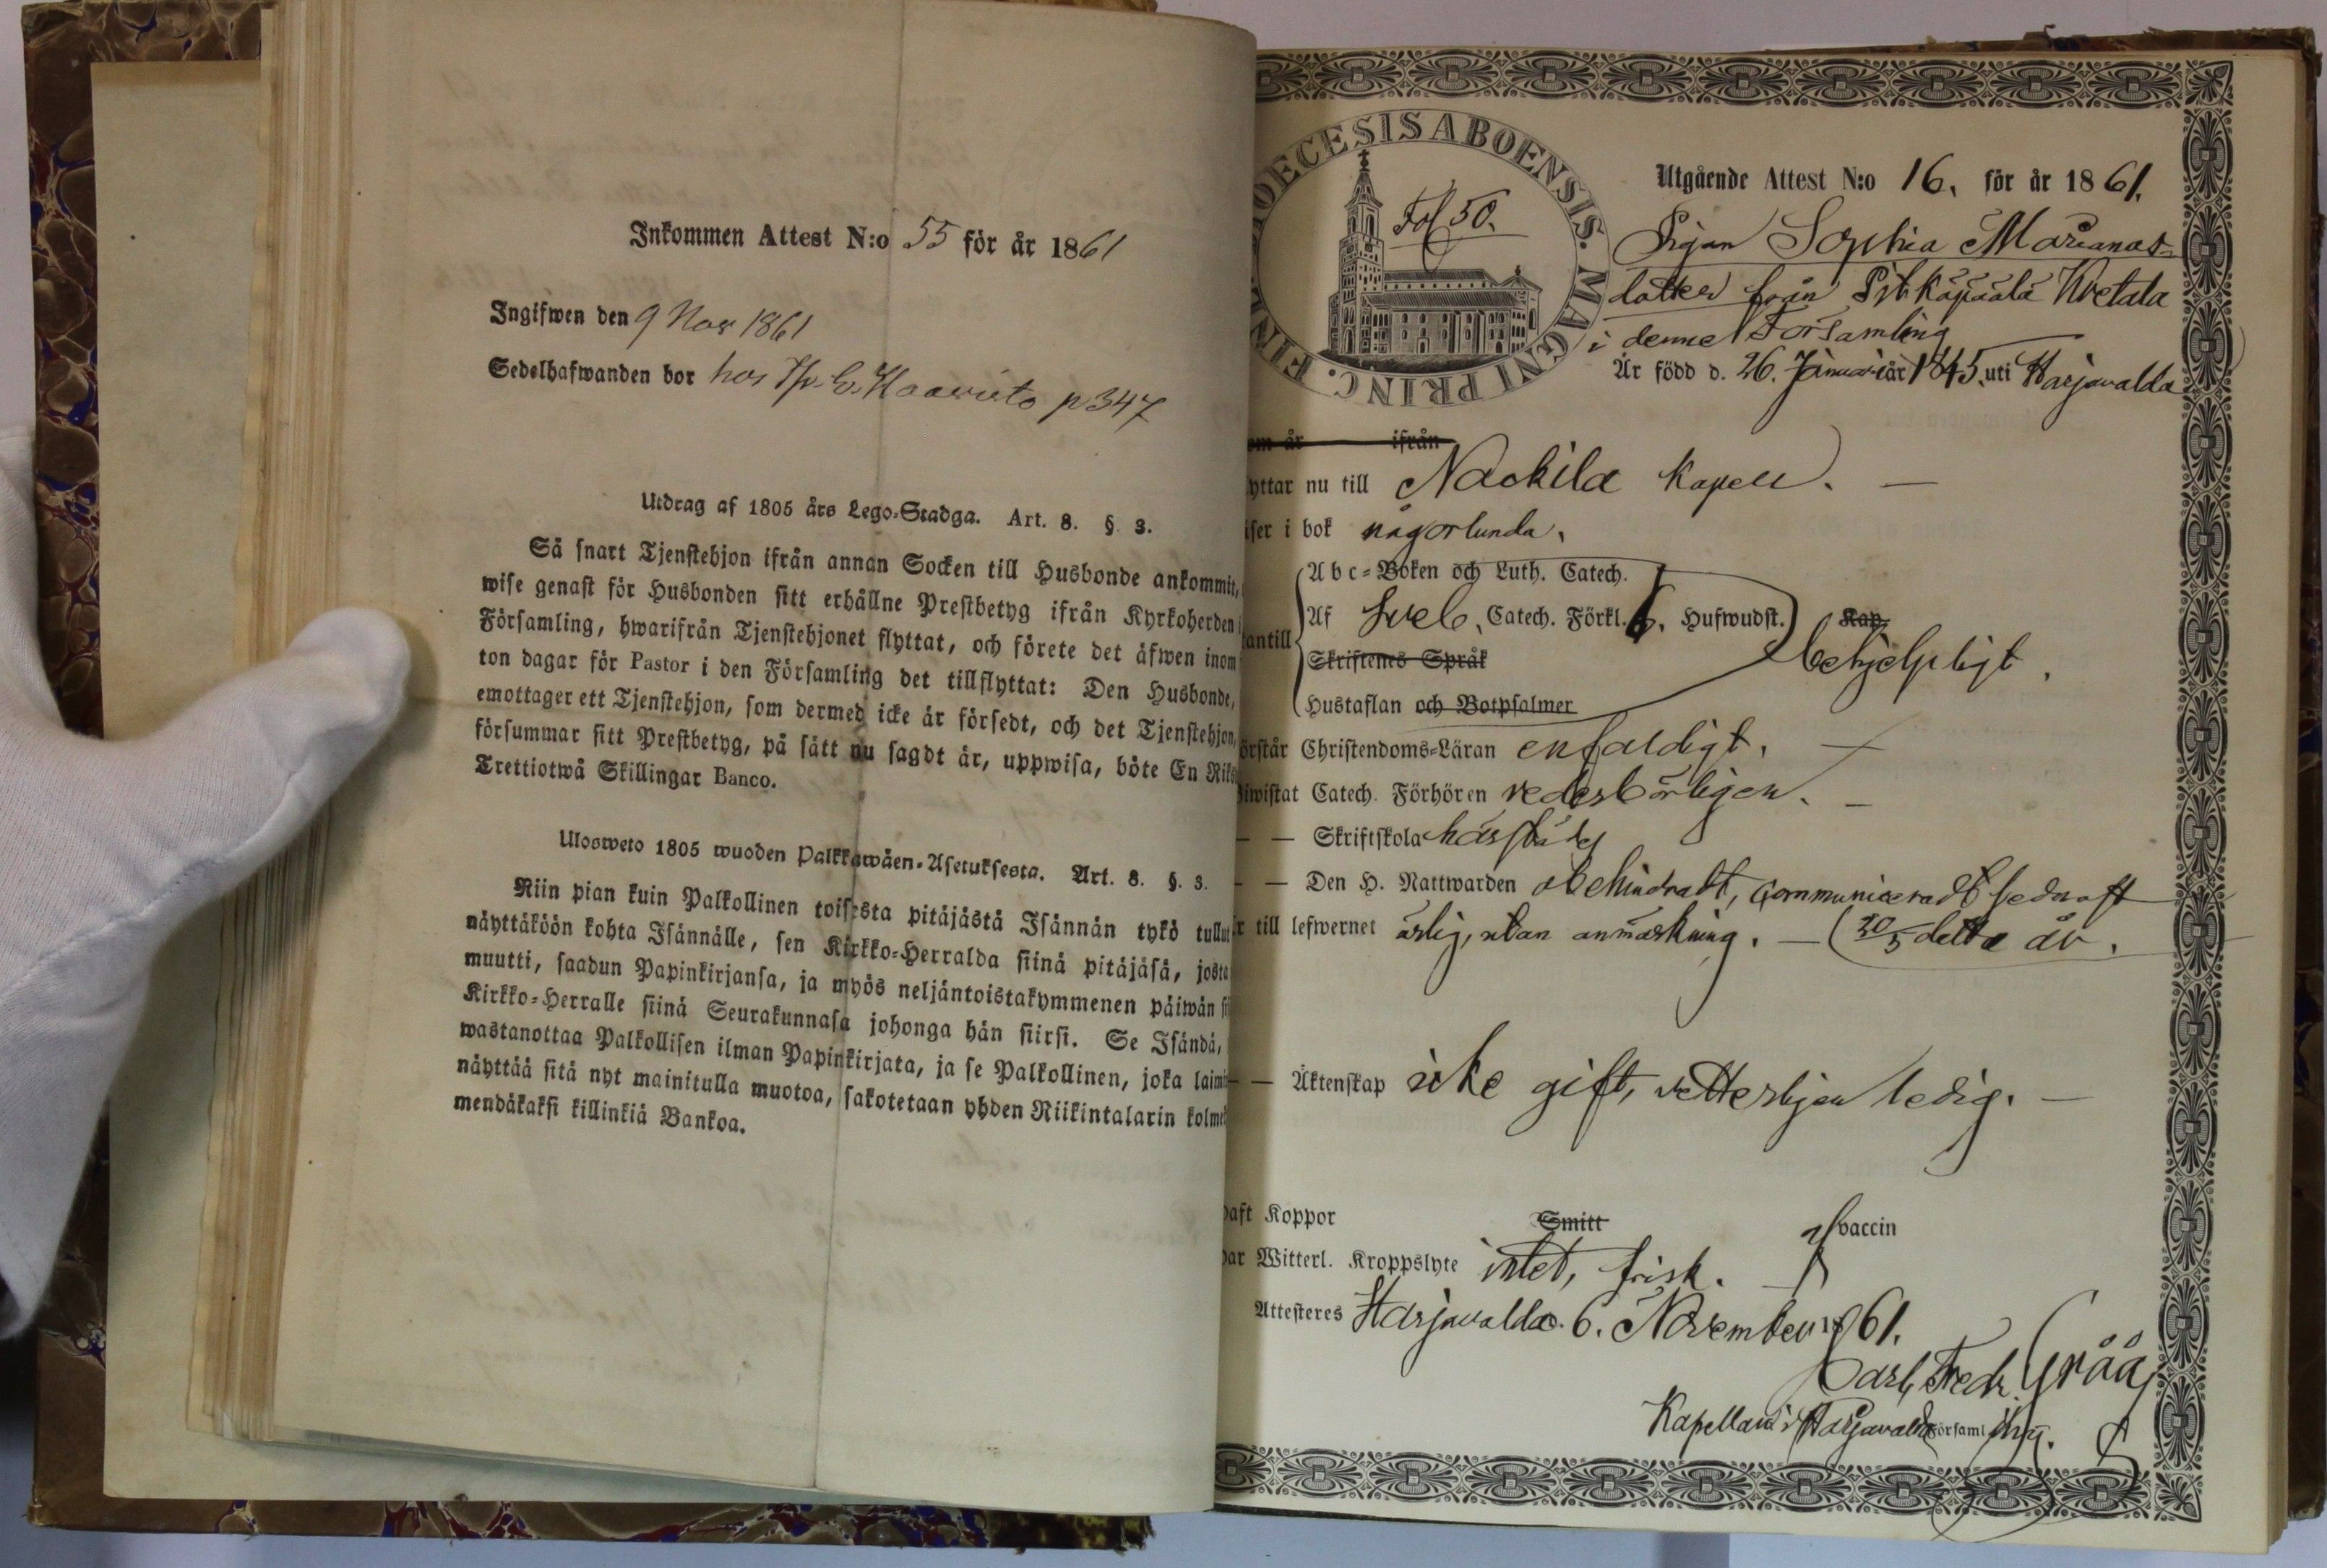 Inkommen Attest N:o 55 för år 1861
Ingifwen den 9 Nov 1861
Sedelhafwanden bor hos p 347
Utdrag af 1805 års Lego-Stadga. Art. 8. §. 3.
Så snart Tjenstehjon ifrån annan Socken till Husbonde ankommit,
wise genast för Husbonden sitt erhållne Prestbetyg ifrån Kyrkoherden
Församling, hwarifrån Tjenstehjonet flyttat, och förete det äfwen inom
ton dagar för Pastor i den Församling det tillflyttat: Den Husbonde,
emottager ett Tjenstehjon, som dermed icke är försedt, och det Tjenstehjon,
försummar sitt Prestbetyg, på sätt nu sagdt är, uppwisa, böte En Riks
Trettiotwå Skillingar Banco.
Ulosweto 1805 wuoden Palkkawäen-Asetuksesta. Art. 8. §. 3.
Niin pian kuin Palkollinen toisesta pitäjästä Isännän tykö tullut
näyttäköön kohta Isännälle, sen Kirkko-Herralda siinä pitäjäsä, josta
muutti, saadun Papinkirjansa, ja myös neljäntoistakymmenen päiwän si
Kirkko-Herralle siinä Seurakunnasa johonga hän siirsi. Se Isändä,
wastanottaa Palkollisen ilman Papinkirjata, ja se Palkollinen, joka laimi
näyttää sitä nyt mainitulla muotoa, sakotetaan yhden Riikintalarin kolme
mendäkaksi killinkiä Bankoa.
DIOECESIS ABOENSIS. MAGNI PRINC. FINL.
Fol 50.
Utgående Attest N:o 16. för år 1861.
Pigan Sophia Marianas
dotter från Pitkäpäälä Kretala
i denne Församling
Är född d. 26. Januari år 1845. uti Harjavalda
om år ifrån
yttar nu till Nackila Kapell. —
iser i bok någorlunda.
Abc-Boken och Luth. Catech.
antill Af Sveb. Catech. Förkl. 6. Hufwudst. Kap.
Skriftenes Språk behjelpligt.
Hustaflan och Botpsalmer
örstår Christendoms-Läran enfaldigt. —
iwistat Catech. Förhören vederbörligen. —
— — Skriftskola härstädes
— — Den H. Nattwarden obehindradt, communiceradt sednast
r till lefwernet ärlig, utan anmärkning. — (30/5 detta år.
— — Äktenskap icke gift, vetterligen ledig. —
haft Koppor Smitt vaccin
har Witterl. Kroppslyte intet, frisk. —
Attesteres Harjavalda d. 6. November 1861.
Carl Fredr. Gråå
Kapellan i Harjavalda Församling.